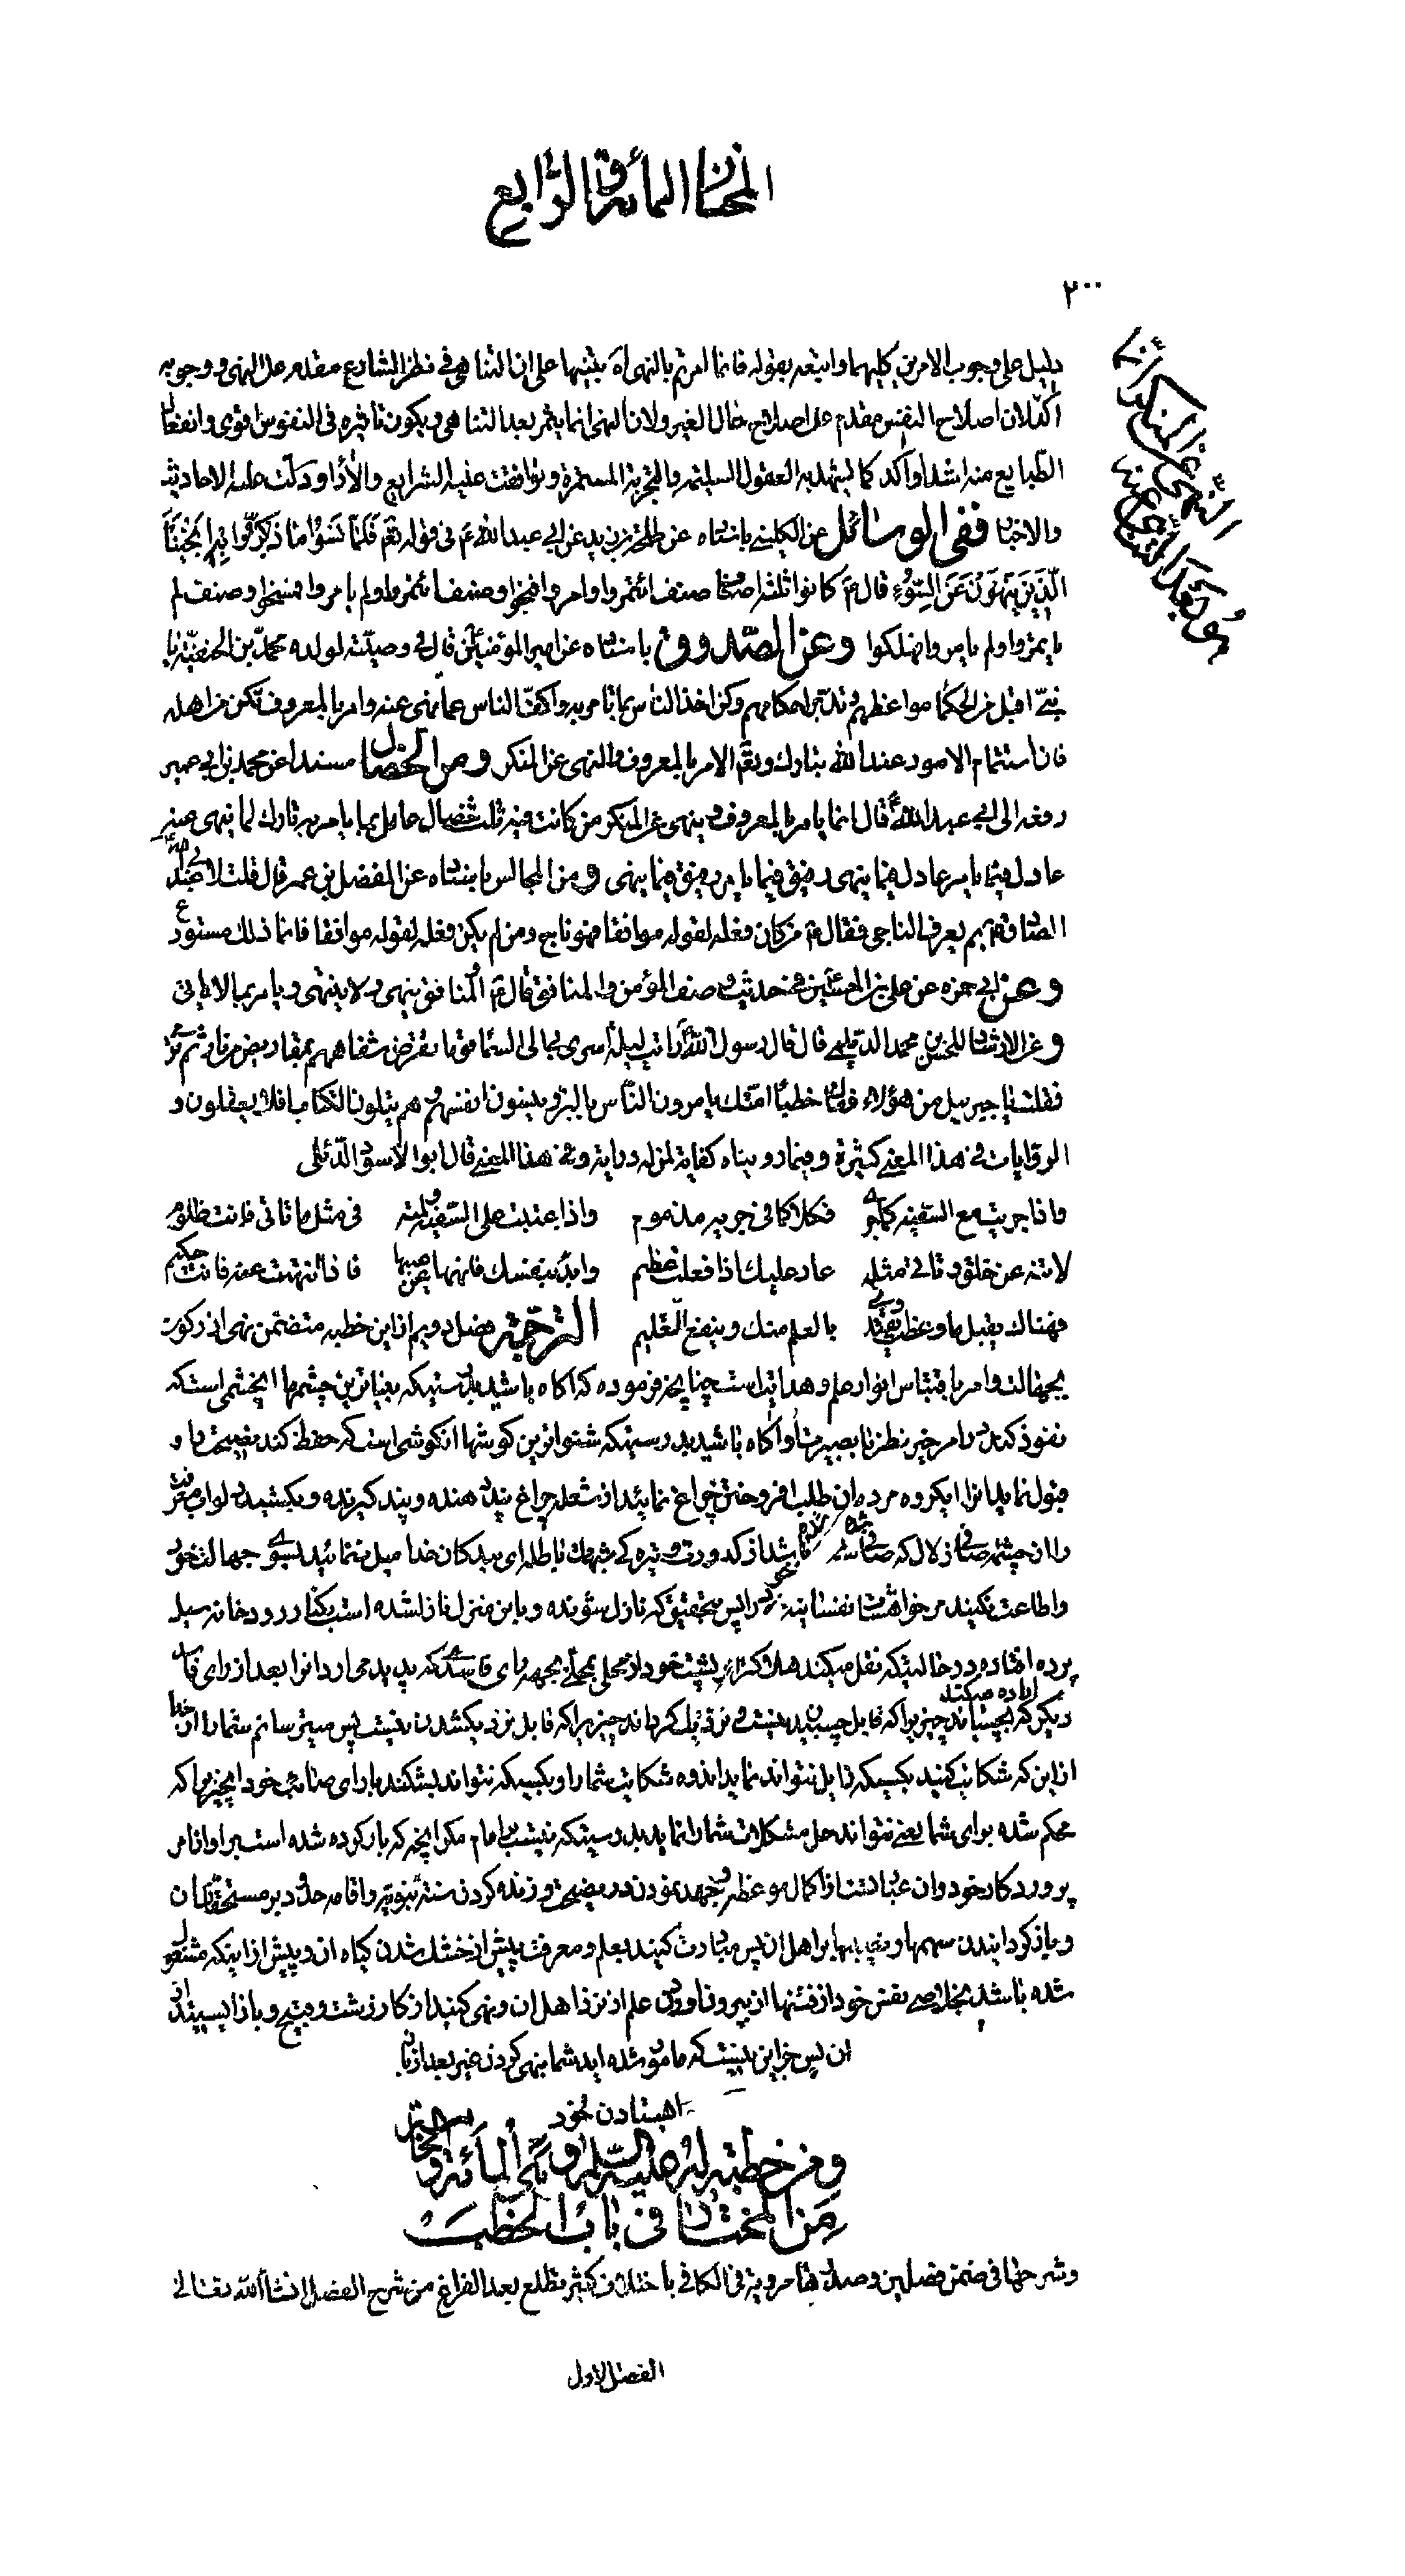 المختار المأة والرابع
٢٠٠
النهى عن المنكر انما
هو بعد التناهى عنه
دليل على وجوب الامرين كليهما واتبعه بقوله فانما امرتم بالنهى اه تنبيها على ان التناهى فى نظر الشارع مقدم على النهى و وجوبه
اكد لان اصلاح النفس مقدم على اصلاح حال الغير ولان النهى انما يثمر بعد التناهى ويكون تاثيره فى النفوس اقوى وانفعال
الطبايع منه اشد واكد كما يشهد به العقول السليمة والتجربة المستمرة وتوافقت عليه الشرايع والآراء ودلت عليه الاحاديث
والاخبار ففى الوسائل عن الكلينى باسناده عن طلحة بن زيد عن ابى عبد الله ع فى قوله تعم فَلَمّا نَسُوا ما ذُكِّرُوا بِهِ اَنْجَيْنَا
الَّذينَ يَنْهَوْنَ عَنِ السُّوءِ قال ع كانوا ثلثة اصناف صنف ائتمروا وامروا فنجوا وصنف ائتمروا ولم يامروا فمسخوا وصنف لم
ياتمروا ولم يامروا فهلكوا وعن الصدوق باسناده عن امير المؤمنين ع قال فى وصيته لولده محمد بن الحنفية يا
بنى اقبل من الحكماء مواعظهم وتدبر احكامهم وكن اخذ الناس بما تامر به واكف الناس عما تنهى عنه وامر بالمعروف تكن من اهله
فان استتمام الامور عند الله تبارك وتعم الامر بالمعروف والنهى عن المنكر ومن الخصال مسندا عن محمد بن ابى عمير
رفعه الى ابى عبد الله ع قال انما يامر بالمعروف وينهى عن المنكر من كانت فيه ثلث خصال عامل بما يامر به تارك لما ينهى عنه
عادل فيما يامر عادل فيما ينهى رفيق فيما يامر رفيق فيما ينهى ومن المجالس باسناده عن المفضل بن عمر قال قلت لابى عبد الله
الصادق ع بم يعرف الناجى فقال ع من كان فعله لقوله موافقا فهو ناج ومن لم يكن فعله لقوله موافقا فانما ذلك مستودع
وعن ابى حمزه عن على بن الحسين ع فى حديث وصف المؤمن والمنافق قال ع المنافق ينهى ولا ينتهى ويامر بما لا ياتى
وعن الارشاد للحسن بن محمد الديلمى قال قال رسول الله ص رايت ليلة اسرى بى الى السماء قوما تقرض شفاههم بمقاريض من نار ثم ترمى
فقلت يا جبرئيل من هؤلاء فقال خطباء امتك يامرون الناس بالبر وينسون انفسهم وهم يتلون الكتاب افلا يعقلون و
الروايات فى هذا المعنى كثيرة وفيما رويناه كفاية لمن له دراية وفى هذا المعنى قال ابو الاسود الدئلى
واذا جريت مع السفيه كما جرى فكلاكما فى جريه مذموم واذا عتبت على السفيه ولمته فى مثل ما تاتى فانت ظلوم
لا تنه عن خلق وتاتى مثله عار عليك اذا فعلت عظيم وابدء بنفسك فانهها عن غيها فاذا انتهت عنه فانت حكيم
فهناك يقبل ما وعظت ويقتدى بالعلم منك وينفع التعليم الترجمة فصل دويم از اين خطبه متضمن نهى از ركون
بجهالت وامر باقتباس انوار علم وهدايت است چنانچه فرموده كه اكاه باشيد بدرستيكه بيناترين چشمها چشمى است كه
نفوذ كند در امر خير نظر با بصيرت او اكاه باشيد بدرستيكه شنواترين كوشها ان كوشى است كه حفظ كند نصيحت را و
قبول نمايد انرا ايكروه مردمان طلب افروختن چراغ نمائيد از شعله چراغ پند دهنده و پند كيرنده و بكشيد دلو اب معرفت
را از چشمه صافى زلال كه صافى شده باشد از كدورت و تيره كى شبهات باطله اى بندكان خدا ميل ننمائيد بسوى جهالت خود
واطاعت نكنيد مر خواهشات نفسانيه خود را پس بتحقيق كه نازل شونده باين منزل نازل شده است بكنار رودخانه سيل
برده افتاده در حالتيكه نقل ميكند هلاكت را بر پشت خود از محلى بمحلى بجهة راى فاسدى كه پديد مى اورد انرا بعد از راى فاسد
ديكر كه اراده ميكند بچسباند چيزيرا كه قابل چسبيدن نيست و نزديك كرداند چيزيرا كه قابل نزديك شدن نيست پس ميترسانم شما را از خدا
از اين كه شكايت كنيد بكسيكه زايل نتواند نمايد اندوه شكايت شما را و بكسيكه نتواند بشكند براى صائب خود انچيزيرا كه
محكم شده براى شما يعنى نتواند حل مشكلات شما را نمايد بدرستيكه نيست بر امام مكر انچه كه بار كرده شده است بر او از امر
پروردكار خود وان عبارتست از اكمال موعظه وجهد نمودن در نصيحت و زنده كردن سنة نبويه واقامه حدود بر مستحقان ان
و باز كردانيدن سهمها و نصيبها بر اهل ان پس مبادرت كنيد بعلم ومعرفت پيش از خشك شدن كياه ان وپيش از اينكه مشغول
شده باشيد بخلاصى نفس خود از فتنها از بيرون اوردن علم از نزد اهل ان ونهى كنيد از كار زشت و قبيح و باز ايستيد از
ان پس جز اين نيست كه مامور شده ايد شما بنهى كردن غير بعد از باز
ايستادن خود
ومن خطبة له عليه السلام وهى المأة والخامس
من المختار فى باب الخطب
وشرحها فى ضمن فصلين وصدرها مروية فى الكافى باختلاف كثير تطلع بعد الفراغ من شرح الفصل انشاء الله تعالى
الفصل الاول